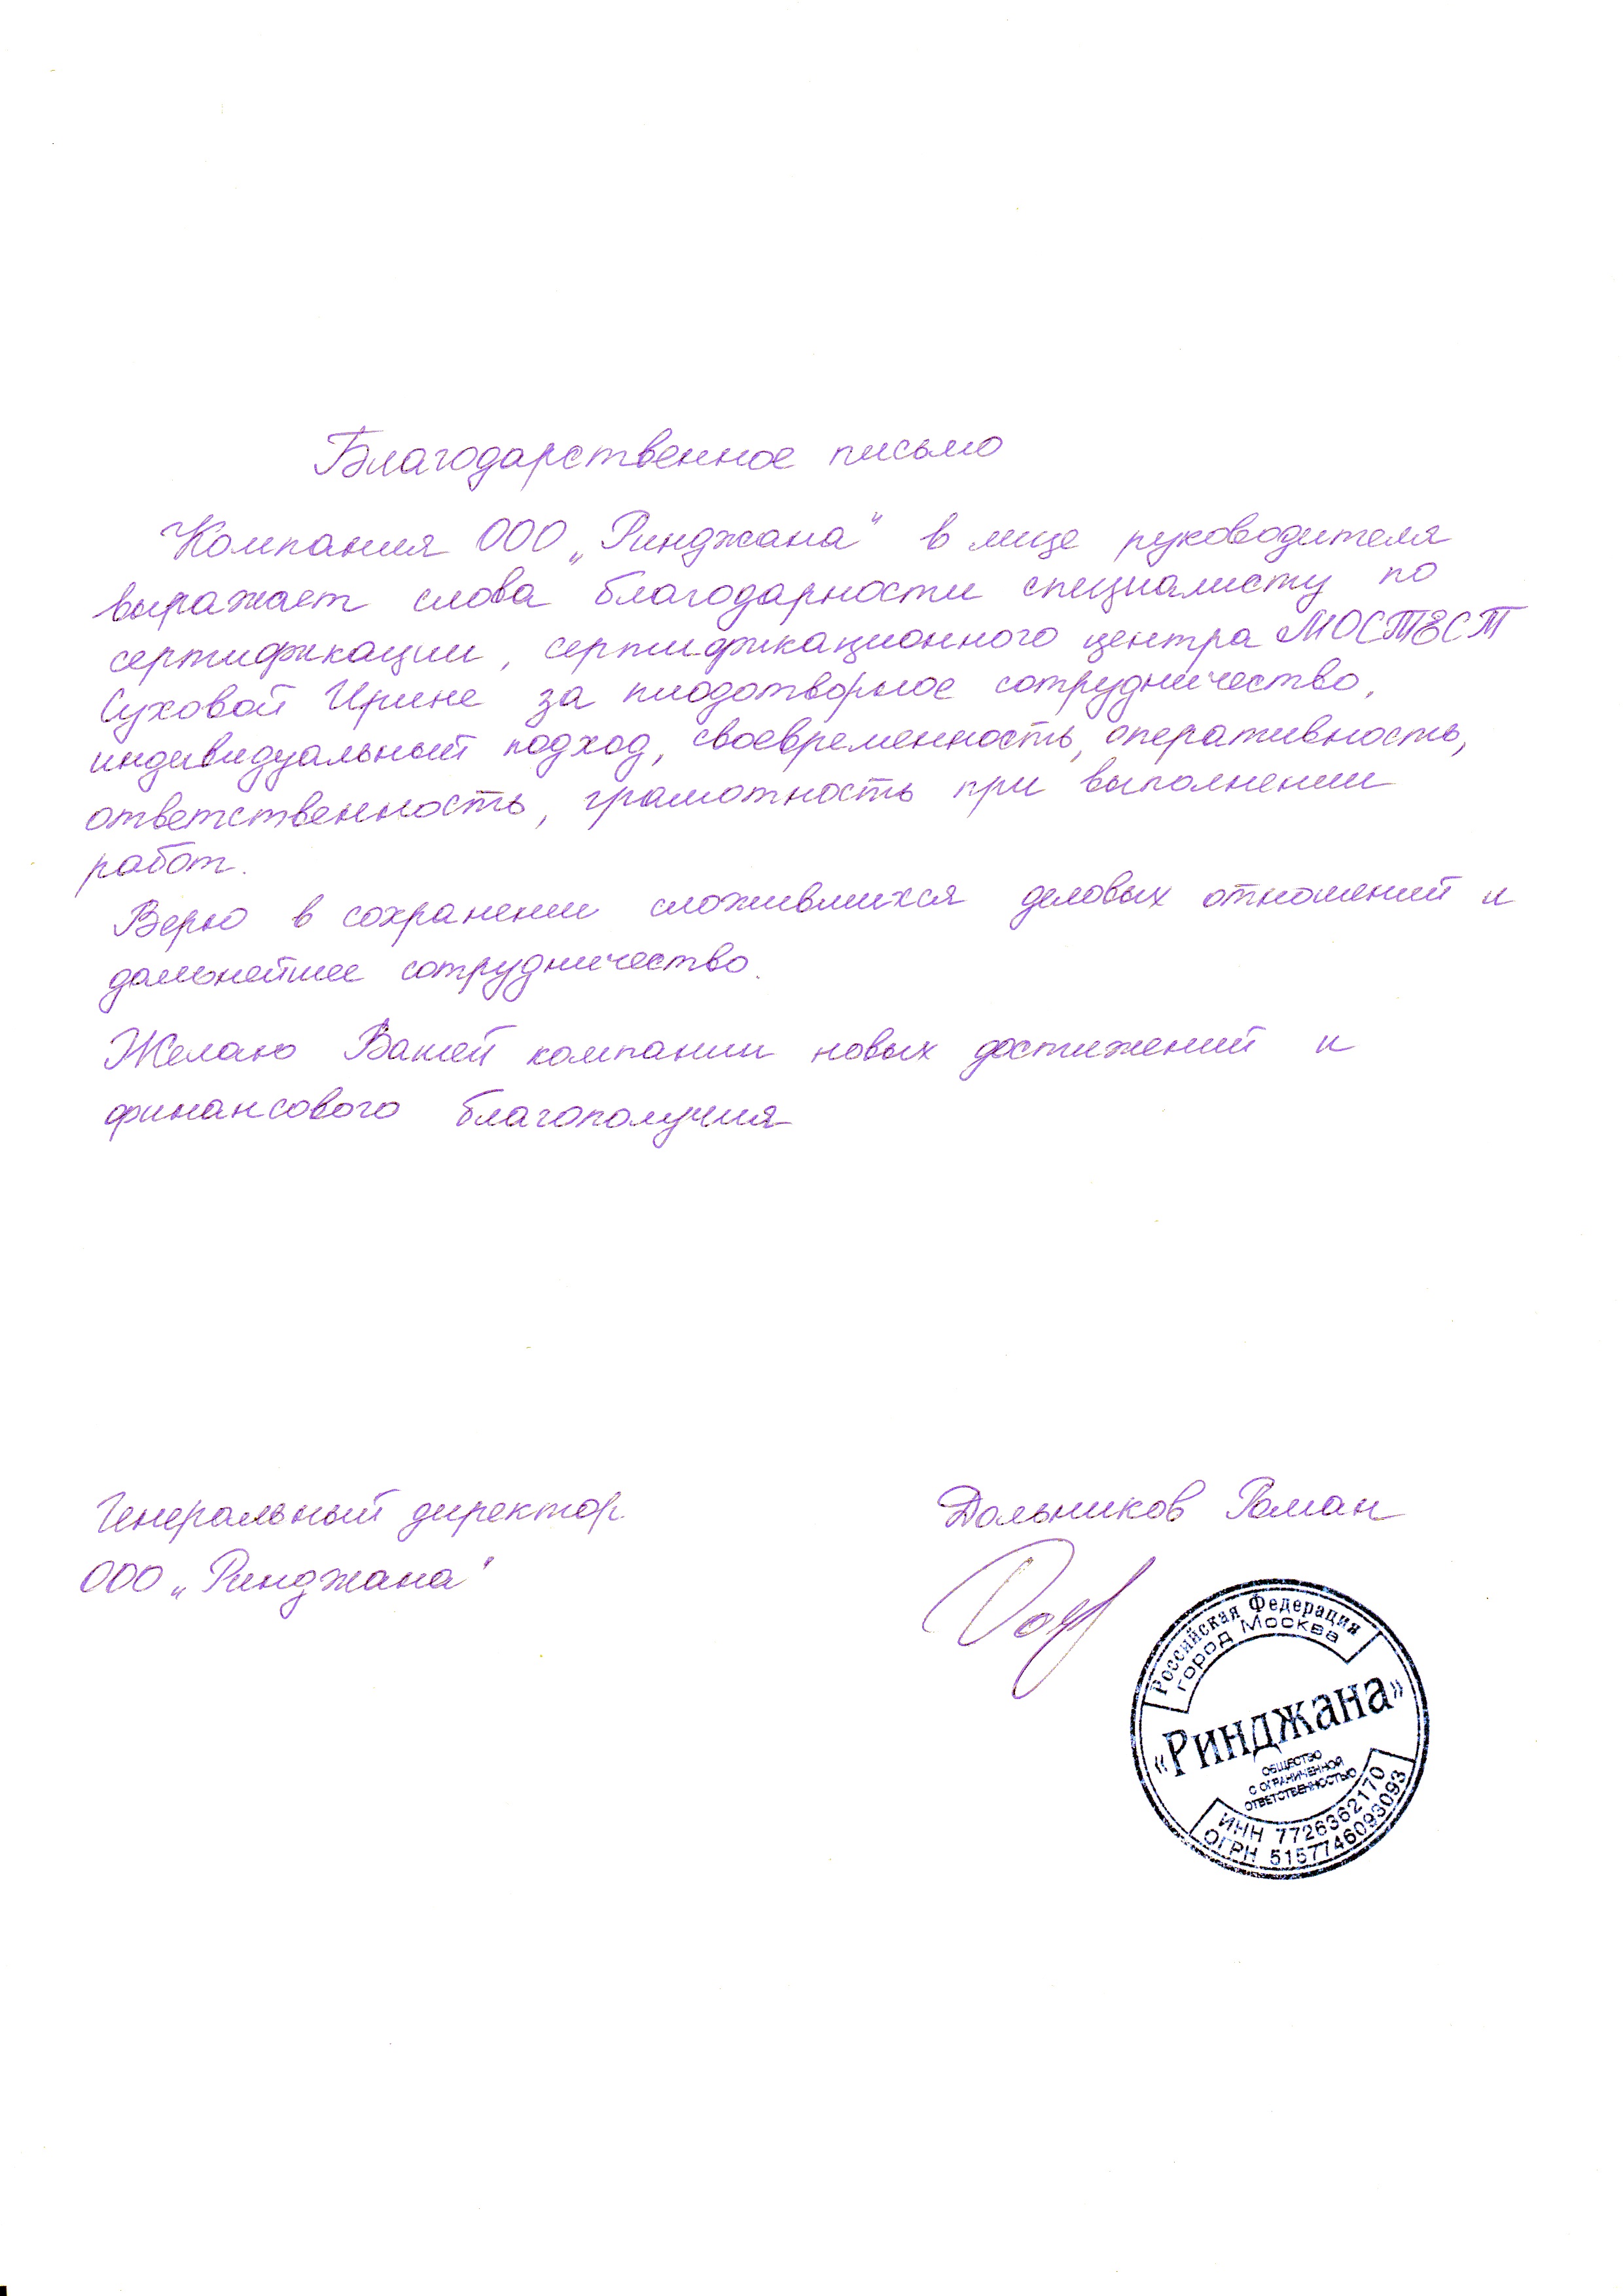 Благодарственное письмо
Компания ООО „Ринджана" в лице руководителя
выражает слова благодарности специалисту по
сертификации, сертификационного центра МОСТЕСТ
Суховой Ирине за плодотворное сотрудничество,
индивидуальный подход, своевременность, оперативность,
ответственность, грамотность при выполнении
работ.
Верю в сохранении сложившихся деловых отношений и
дальнейшее сотрудничество.
Желаю Вашей компании новых достижений и
финансового благополучия
Генеральный директор
ООО „Ринджана"
Дольников Роман
Российская Федерация
город Москва
«Ринджана»
ОБЩЕСТВО
С ОГРАНИЧЕННОЙ
ОТВЕТСТВЕННОСТЬЮ
ИНН 7726362170
ОГРН 5157746093093